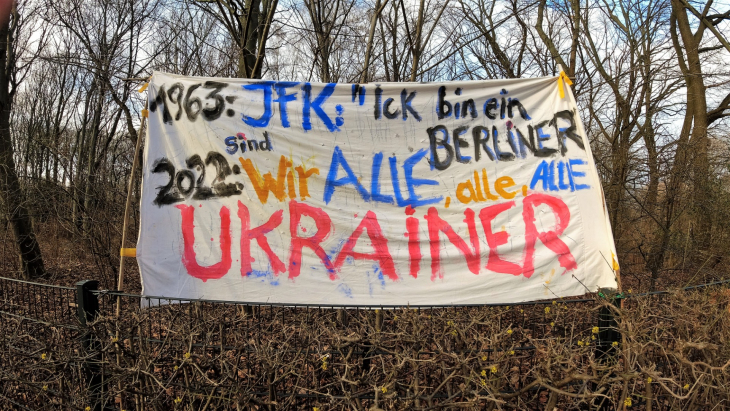 1963: JFK: "Ick bin ein
BERLINER
2022: sind Wir ALLE, alle, ALLE
UKRAiNER